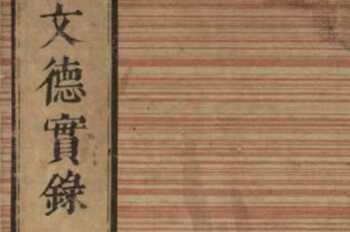 文德實錄